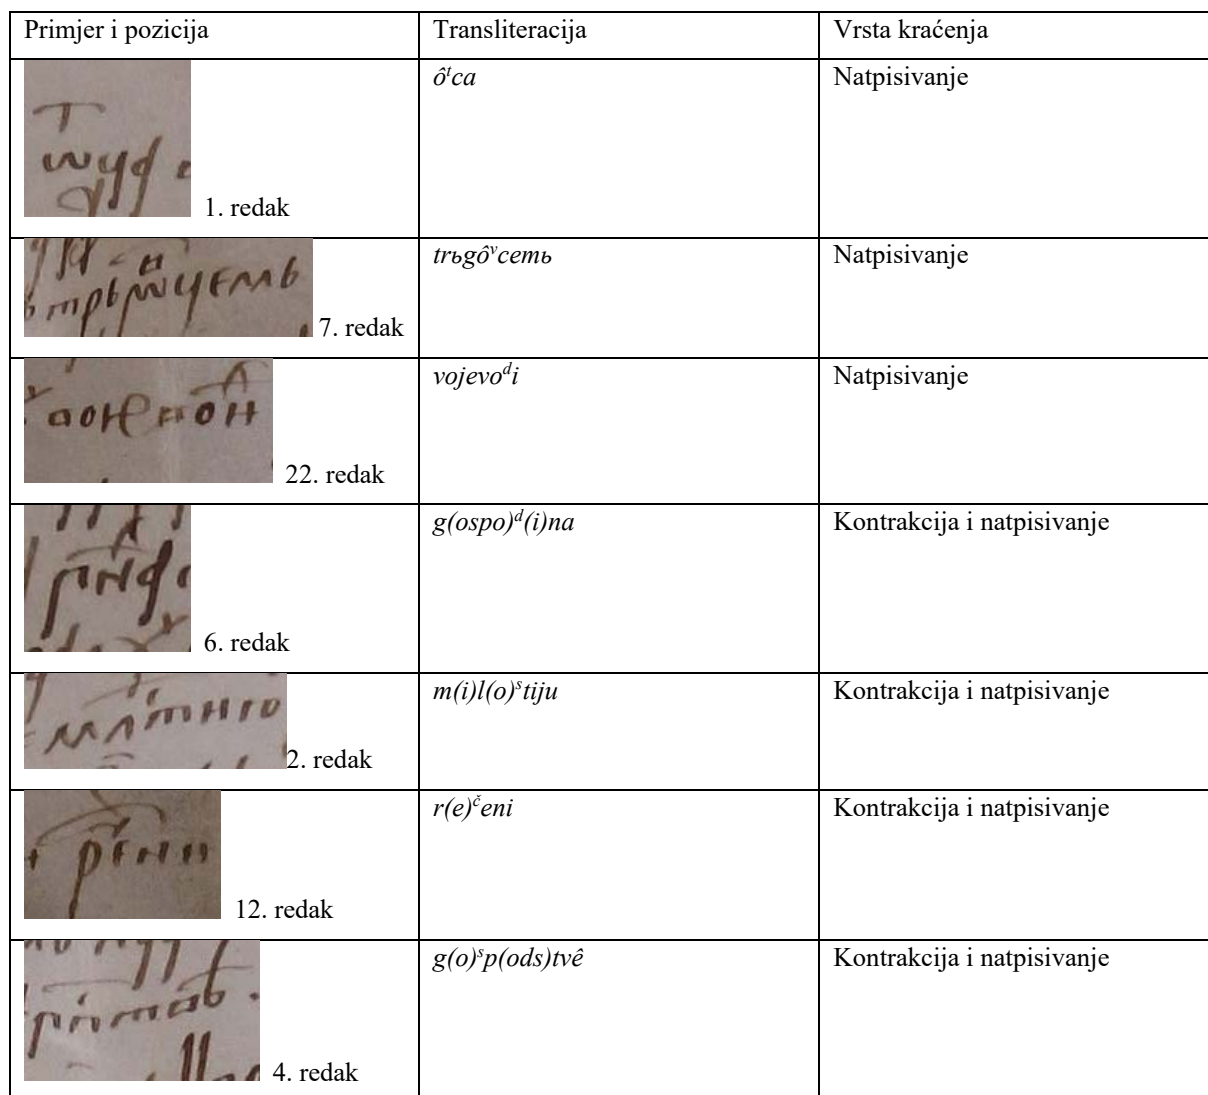 Primjer i pozicija Transliteracija Vrsta kraćenja
1. redak ôᵗca Natpisivanje
7. redak trьgôᵛcemь Natpisivanje
22. redak vojevoᵈi Natpisivanje
6. redak g(ospo)ᵈ(i)na Kontrakcija i natpisivanje
2. redak m(i)l(o)ˢtiju Kontrakcija i natpisivanje
12. redak r(e)č̌eni Kontrakcija i natpisivanje
4. redak g(o)ˢp(ods)tvê Kontrakcija i natpisivanje